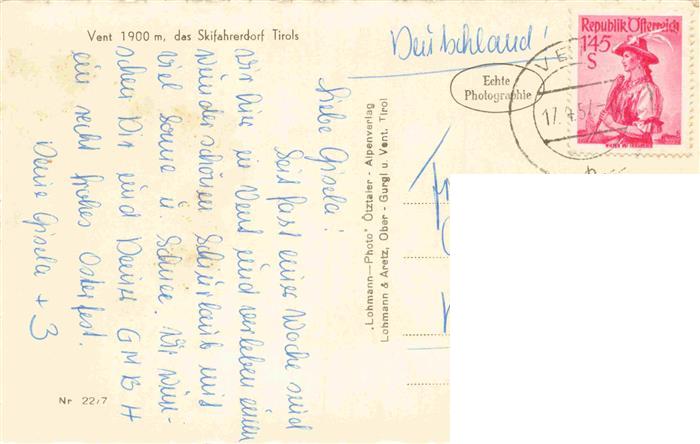 Vent 1900 m, das Skifahrerdorf Tirols
Liebe Gisela!
Seit fast einer Woche sind
wir hier in Vent und verleben einen
wunderschönen Skiurlaub mit
viel Sonne u. Schnee. Wir wün-
schen Dir und Deiner GMBH
ein recht frohes Osterfest.
Deine Gisela + 3
Nr 22/7
„Lohmann—Photo" Ötztaler - Alpenverlag
Lohmann & Aretz, Ober - Gurgl u. Vent, Tirol
Deutschland!
Echte
Photographie
Republik Österreich
1'45
S
VE
17. 4. 57